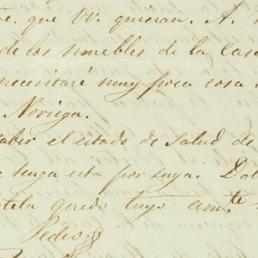 que VV. quieran. A.
de los muebles de la casa
necesitaré muy poca cosa
Noriega.
saber el estado de salud de
tenga esta por suya. 
quedo tuyo
Pedro